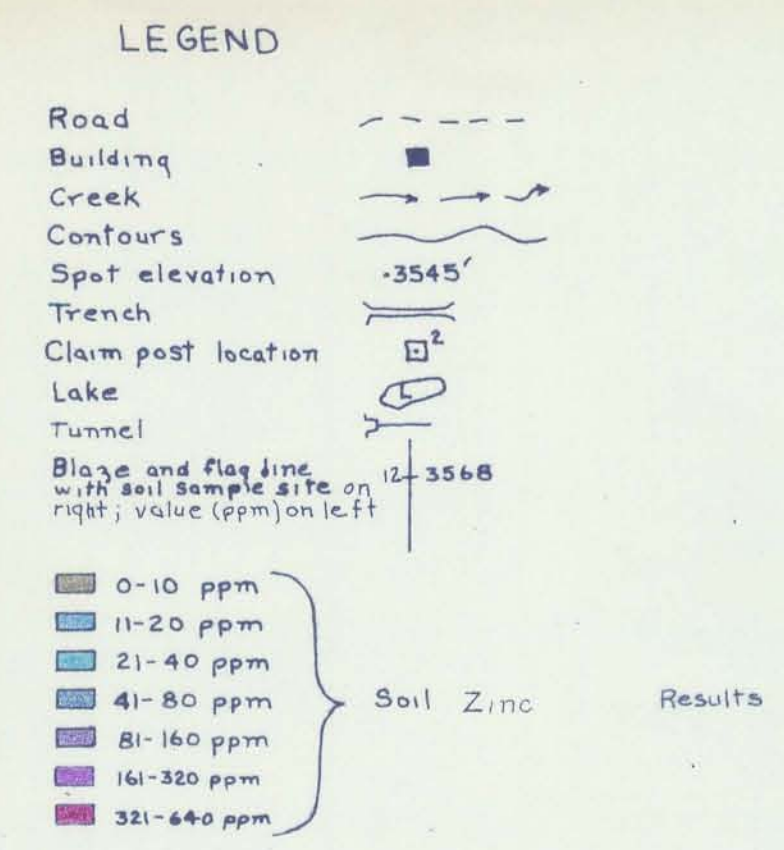 LEGEND
Road
Building
Creek
Contours
Spot elevation ·3545'
Trench
Claim post location 2
Lake L
Tunnel
Blaze and flag line
with soil sample site on 12 3568
right; value (ppm) on left
0-10 ppm
11-20 ppm
21-40 ppm
41-80 ppm Soil Zinc Results
81-160 ppm
161-320 ppm
321-640 ppm